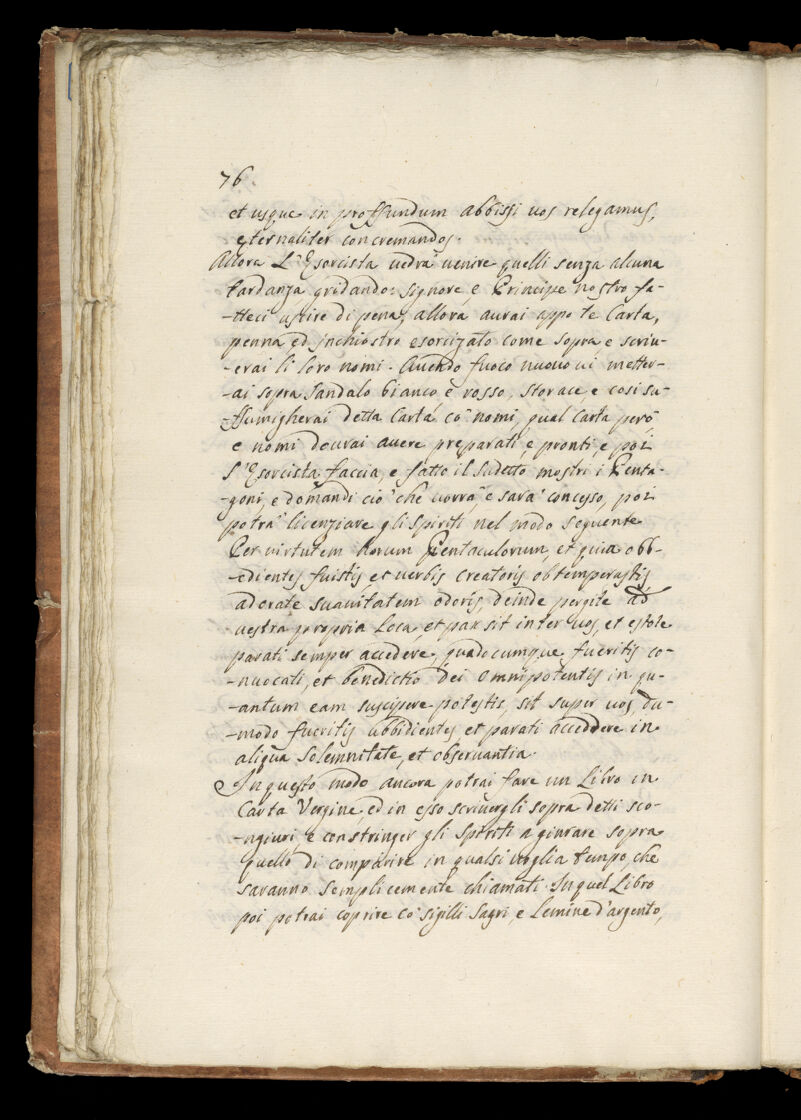 76.
et usque in proffundum abbissi uos relegamus,
eternaliter concremandos.
Allora L'Esorcista uedra uenire quelli senza alcuna
tardanza gridando: signore, e Principe nostro fa-
-tteci uscire di pena, allora aurai appo te Carta,
penna ed inchiostro esorcizato come sopra e scriu-
-erai li loro nomi. Auendo fuoco nuouo ui metter-
-ai sopra Sandalo bianco, e rosso, storace, e cosi su-
-ffumigherai detta Carta co' nomi, qual Carta però
e nomi deurai auere preparati, e pronti, e poi
l'Esorcista faccia, e fatto il sudetto mostri i Penta-
-goni, e domandi ciò che uorrà e sarà concesso, poi
potrà licenziare gli spiriti nel modo seguente
Per uirtutem Horum Pentaculorum, et quia obb-
-edientes fuistis et uerbis Creatoris obtemperastis
adorate suauitatem odoris, deinde pergite ad
uestra propria Loca, et pax sit inter uos, et estote
parati semper accedere, quadocumque fueritis co-
-nuocati, et benedictio Dei Omnipotentis in qu-
-antum eam suscipere potestis, sit super uos du-
-modo fueritis ubbidientes, et parati acceddere in
aliqua Solemnitate, et obseruantia.
In questo modo ancora potrai fare un Libro in
Carta Vergine, ed in esso scriuergli sopra detti sco-
-ngiuri, e constringer gli Spiriti a giurare sopra
quello di comparire in qualsiuoglia tempo, che
saranno semplicemente chiamati. In quel Libro
poi potrai coprire co' sigilli Sagri, e Lemine d'argento,